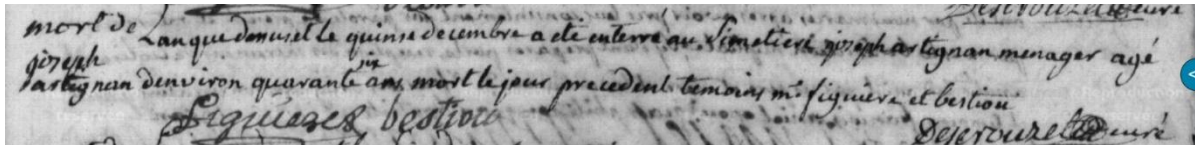 mort de
joseph
artignan
Lan que denus et le quinse decembre a eté enterré au Simetiere joseph artignan menager agé
denviron quarante six ans mort le jour precedent temoins mrs figuiere et bestiou
Figuieres bestiou
curé